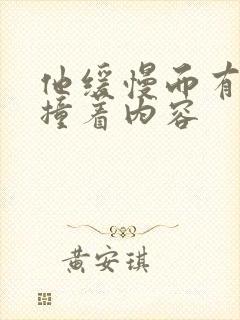 他缓慢而有
撞着内容
黄安琪